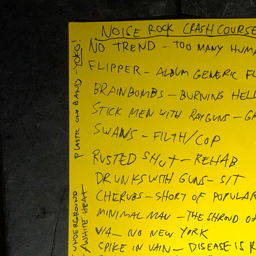 NOISE ROCK CRASH COURSE
NO TREND - TOO MANY HUM
FLIPPER - ALBUM GENERIC FL
BRAINBOMBS - BURNING HELL
STICK MEN WITH RAYGUNS - G
SWANS - FILTH/COP
RUSTED SHUT - REHAB
DRUNKS WITH GUNS - S/T
CHERUBS - SHORT OF POPULAR
MINIMAL MAN - THE SHROUD OF
V/A - NO NEW YORK
SPIKE IN VAIN - DISEASE IS R
PLASTIC ONO BAND - YOKO!
UNDERGROUND
/WHITE HEAT